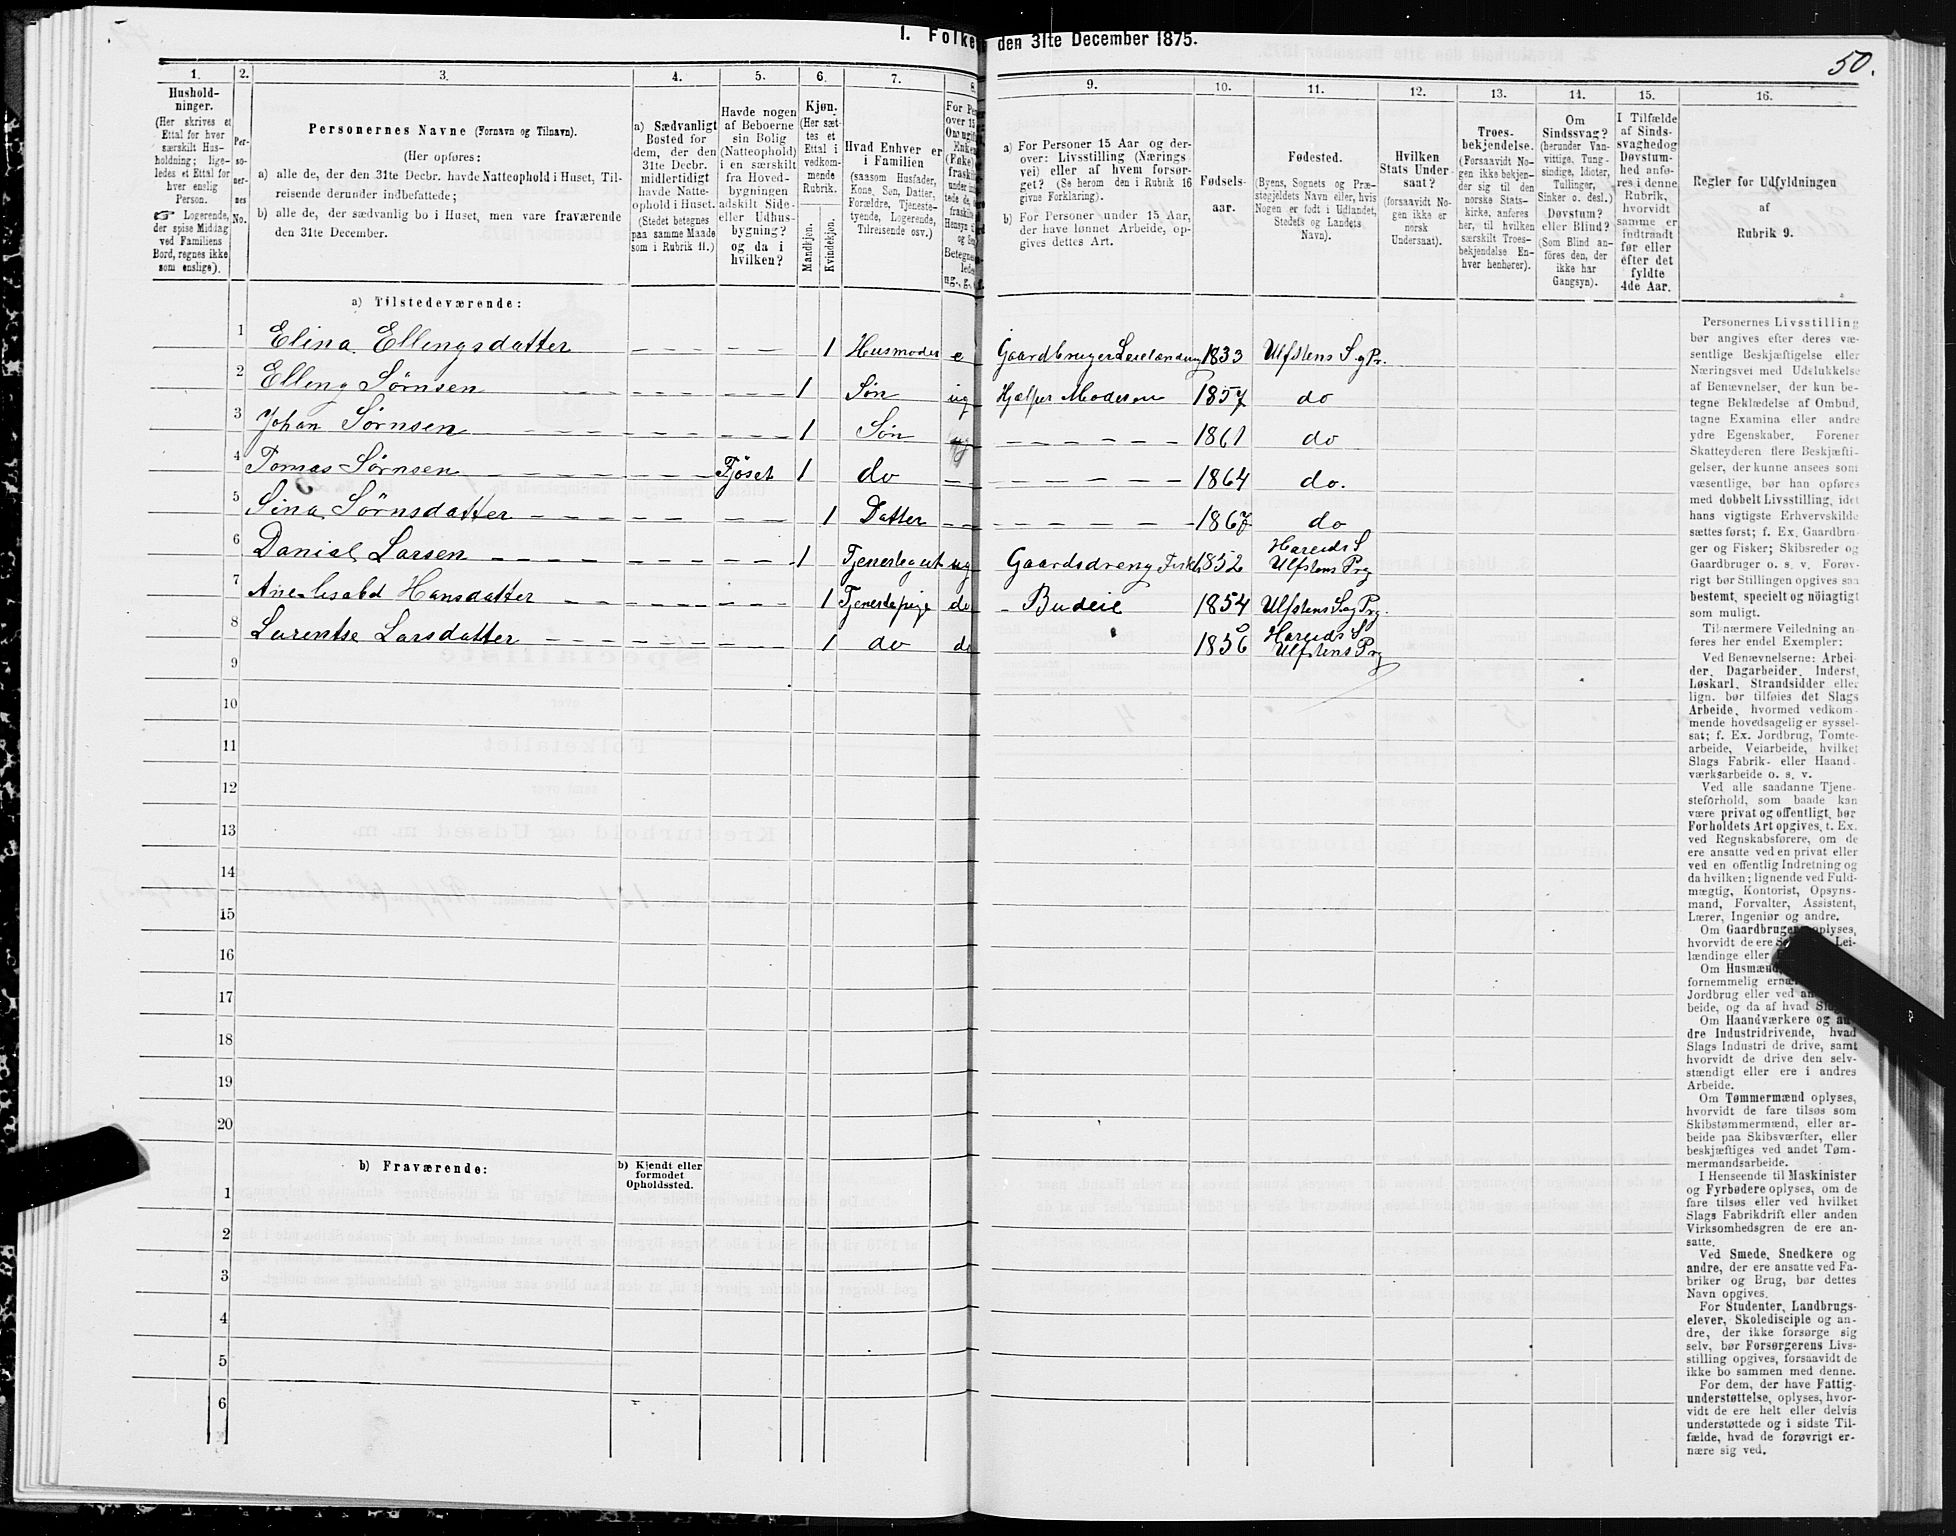 50.
1. Folke den 31te December 1875.
1. 2. 3. 4. 5. 6. 7. 8. 9. 10. 11. 12. 13. 14. 15. 16.
Hushold-
ninger.
(Her skrives et
Ettal for hver
særskilt Hus-
holdning; lige-
ledes et Ettal for
hver enslig
Person.
☞ Logerende,
der spise Middag
ved Familiens
Bord, regnes ikke
som enslige).
Per-
so-
ner-
nes
No.
Personernes Navne (Fornavn og Tilnavn).
(Her opføres:
a) alle de, der den 31te Decbr. havde Natteophold i Huset, Til-
reisende derunder indbefattede;
b) alle de, der sædvanlig bo i Huset, men vare fraværende
den 31te December.
a) Sædvanligt
Bosted for
dem, der den
31te Decbr.
midlertidigt
havde Natte-
ophold i Huset.
(Stedet betegnes
paa samme Maade
som i Rubrik 11.)
Havde nogen
af Beboerne
sin Bolig
(Natteophold)
i en særskilt
fra Hoved-
bygningen
adskilt Side-
eller Udhus-
bygning?
og da i
hvilken?
Kjøn.
(Her sæt-
tes et
Ettal i
vedkom-
mende
Rubrik.
Mandkjøn.
Kvindekjøn.
Hvad Enhver er
i Familien
(saasom Husfader,
Kone, Søn, Datter,
Forældre, Tjeneste-
tyende, Logerende,
Tilreisende osv.)
For Pe
over 15
Om ugift
Enken
(Føke)
fraski
under inds
tede, de
fraski
Hensyn
og Sen
Betegne
lede
ug., g.,
a) For Personer 15 Aar og der-
over: Livsstilling (Nærings
vei) eller af hvem forsør-
get? (Se herom den i Rubrik 16
givne Forklaring).
b) For Personer under 15 Aar,
der have lønnet Arbeide, op-
gives dettes Art.
Fødsels-
aar.
Fødested.
(Byens, Sognets og Præ-
stegjeldets Navn eller, hvis
Nogen er født i Udlandet,
Stedets og Landets
Navn).
Hvilken
Stats Under
saat?
(forsaavidt No-
gen ikke er
norsk
Undersaat).
Troes-
bekjendelse.
(Forsaavidt No-
gen ikke bekjen-
der sig til den
norske Stats-
kirke, anføres
her, til hvilken
særskilt Troes-
bekjendelse En-
hver henhører).
Om
Sindssvag?
(herunder Van-
vittige, Tung-
sindige, Idioter,
Tullinger,
Sinker o. desl.)
Døvstum?
eller Blind?
(Som Blind an-
føres den, der
ikke har
Gangsyn).
I Tilfælde
af Sinds-
svaghedog
Døvstum-
hed anfø-
res i denne
Rubrik,
hvorvidt
samme er
indtraadt
før eller
efter det
fyldte
4de Aar.
Regler for Udfyldningen
af
Rubrik 9.
a) Tilstedeværende:
1 Elina Ellingsdatter 1 Husmoder e Gaardbruger Leielænding 1833 Ulfstens S. og Pr.
2 Elling Sørnsen 1 Søn ug Hjælper Moderen 1857 do
3 Johan Sørnsen 1 Søn 1861 do
4 Tomas Sørnsen Fjøset 1 do 1864 do.
5 Sina Sørnsdatter 1 Datter 1867 do
6 Daniel Larsen 1 Tjenestegut ug Gaardsdreng Fisk 1852 Hareids S Ulfstens Prg
7 Ane-lisabd Hansdatter 1 Tjenestepige do Budeie 1854 Ulfstens S og Prg.
8 Larentse Larsdatter 1 do do 1856 Hareids S Ulfstens Prg
9
10
11
12
13
14
15
16
17
18
19
20
b) Fraværende:
b) Kjendt eller
formodet
Opholdssted.
1
2
3
4
5
6
Personernes Livsstilling
bør angives efter deres væ-
sentlige Beskjæftigelse eller
Næringsvei med Udelukkelse
af Benævnelser, der kun be-
tegne Beklædelse af Ombud,
tagne Examina eller andre
ydre Egenskaber. Forener
Skatteyderen flere Beskjæfti-
gelser, der kunne ansees som
væsentlige, bør han opføres
med dobbelt Livsstilling, idet
hans vigtigste Erhvervskilde
sættes først; f. Ex. Gaardbru-
ger og Fisker; Skibsreder og
Gaardbruger o. s. v. Forøv-
rigt bør Stillingen opgives saa
bestemt, specielt og nøiagtigt
som muligt.
Til nærmere Veiledning an-
føres her endel Exempler:
Ved Benævnelserne: Arbei-
der, Dagarbeider, Inderst,
Løskarl, Strandsidder eller
lign. bør tilføies det Slags
Arbeide, hvormed vedkom-
mende hovedsagelig er syssel-
sat; f. Ex. Jordbrug, Tomte-
arbeide, Veiarbeide, hvilket
Slags Fabrik- eller Haand-
værksarbeide o. s. v.
Ved alle saadanne Tjene-
steforhold, som baade kan
være privat og offentligt, bør
Forholdets Art opgives, t. Ex.
ved Regnskabsførere, om de
ere ansatte ved en privat eller
ved en offentlig Indretning og
da hvilken; lignende ved Fuld-
mægtig, Kontorist, Opsyns-
mand, Forvalter, Assistent,
Lærer, Ingeniør og andre.
Om Gaardbruger oplyses,
hvorvidt de ere Se Lei-
lændinge eller
Om Husmænd,
fornemmelig ernær
Jordbrug eller ved an
beide, og da af hvad Slags
Om Haandværkere og an-
dre Industridrivende, hvad
Slags Industri de drive, samt
hvorvidt de drive den selv-
stændigt eller ere i andres
Arbeide.
Om Tømmermænd oplyses,
hvorvidt de fare tilsøs som
Skibstømmermænd, eller ar-
beide paa Skibsværfter, eller
beskjæftiges ved andet Tøm-
mermandsarbeide.
I Henseende til Maskinister
og Fyrbødere oplyses, om de
fare tilsøs eller ved hvilket
Slags Fabrikdrift eller anden
Virksomhedsgren de ere an-
satte.
Ved Smede, Snedkere og
andre, der ere ansatte ved Fa-
briker og Brug, bør dettes
Navn opgives.
For Studenter, Landbrugs-
elever, Skoledisciple og an-
dre, der ikke forsørge sig
selv, bør Forsørgerens Livs-
stilling opgives, forsaavidt de
ikke bo sammen med denne.
For dem, der have Fattig-
understøttelse, oplyses, hvor-
vidt de ere helt eller delvis
understøttede og i sidste Til-
fælde, hvad de forøvrigt er-
nære sig ved.